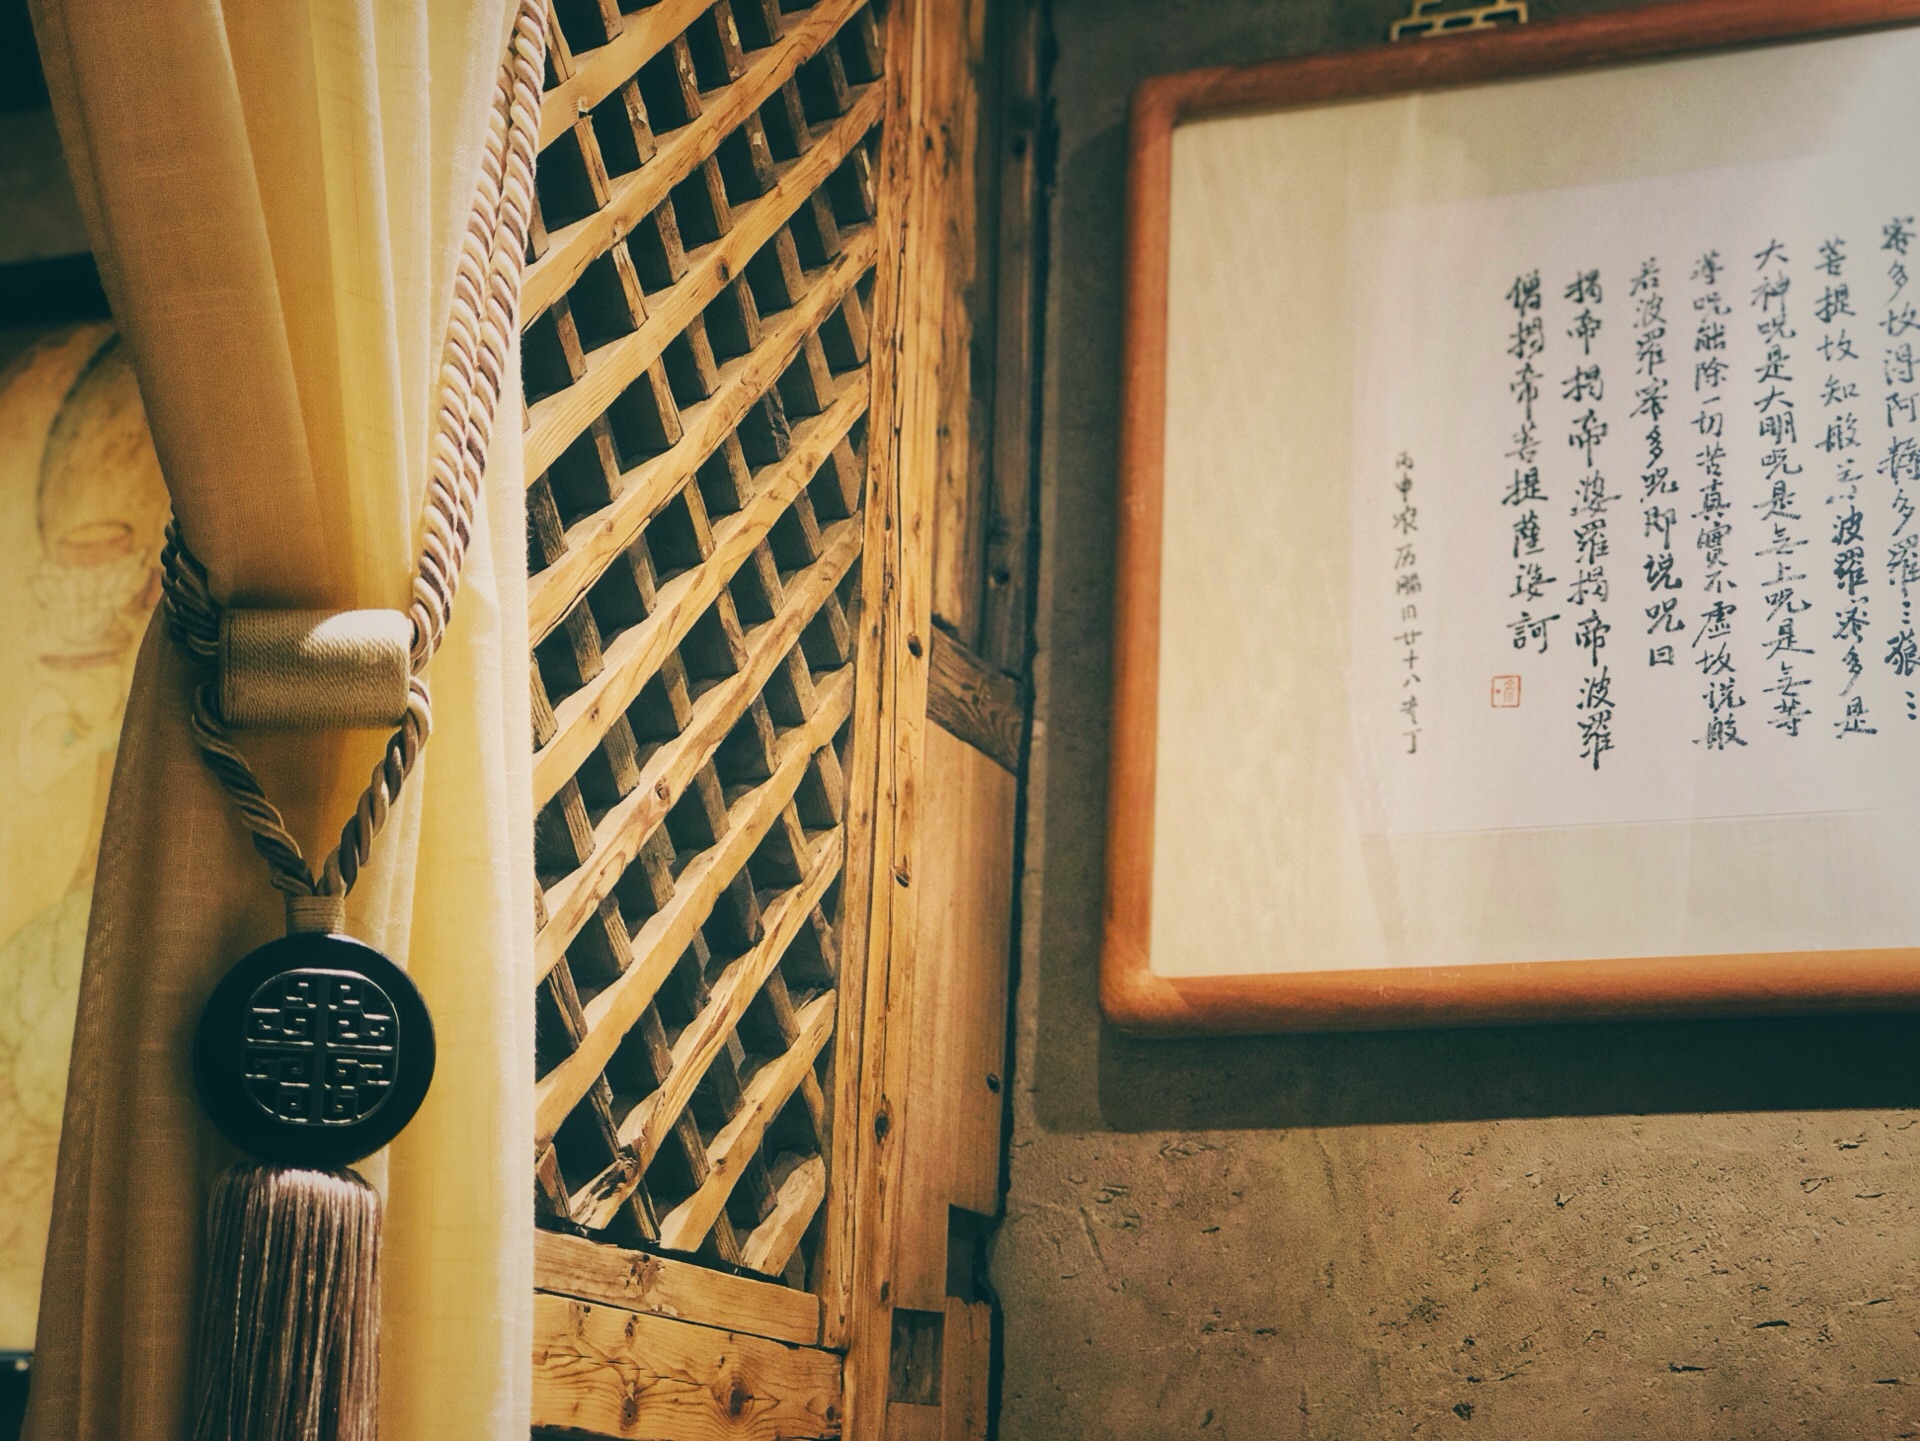 密多故得阿耨多羅三藐三
菩提故知般若波羅密多是
大神呪是大明呪是无上呪是无等
等呪能除一切苦真實不虛故说般
若波羅密多呪即说呪曰
揭帝揭帝波羅揭帝波羅
僧揭帝菩提薩婆訶
丙申农历腊月廿十八